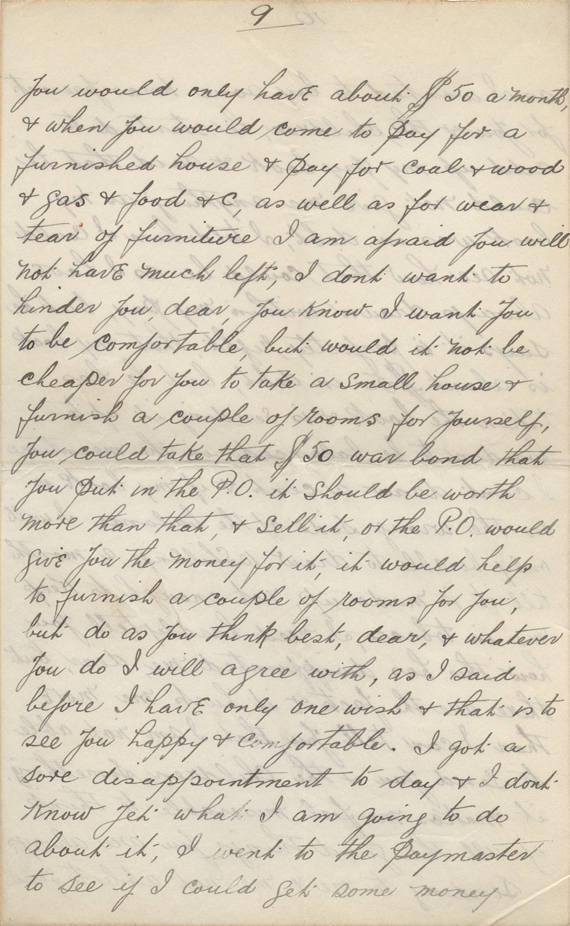 9
You would only have about $50 a month,
& when you would come to pay for a
furnished house & pay for coal & wood
& gas & food &c, as well as for wear &
tear of furniture I am afraid you will
not have much left, I dont want to
hinder you, dear, you know I want you
to be comfortable, but would it not be
cheaper for you to take a small house &
furnish a couple of rooms for yourself,
you could take that $50 war bond that
you put in the P.O. it should be worth
more than that, & sell it, or the P.O. would
give you the money for it, it would help
to furnish a couple of rooms for you,
but do as you think best, dear, & whatever
you do I will agree with, as I said
before I have only one wish & that is to
see you happy & comfortable. I got a
sore disappointment to day & I dont
know yet what I am going to do
about it, I went to the Paymaster
to see if I could get some money